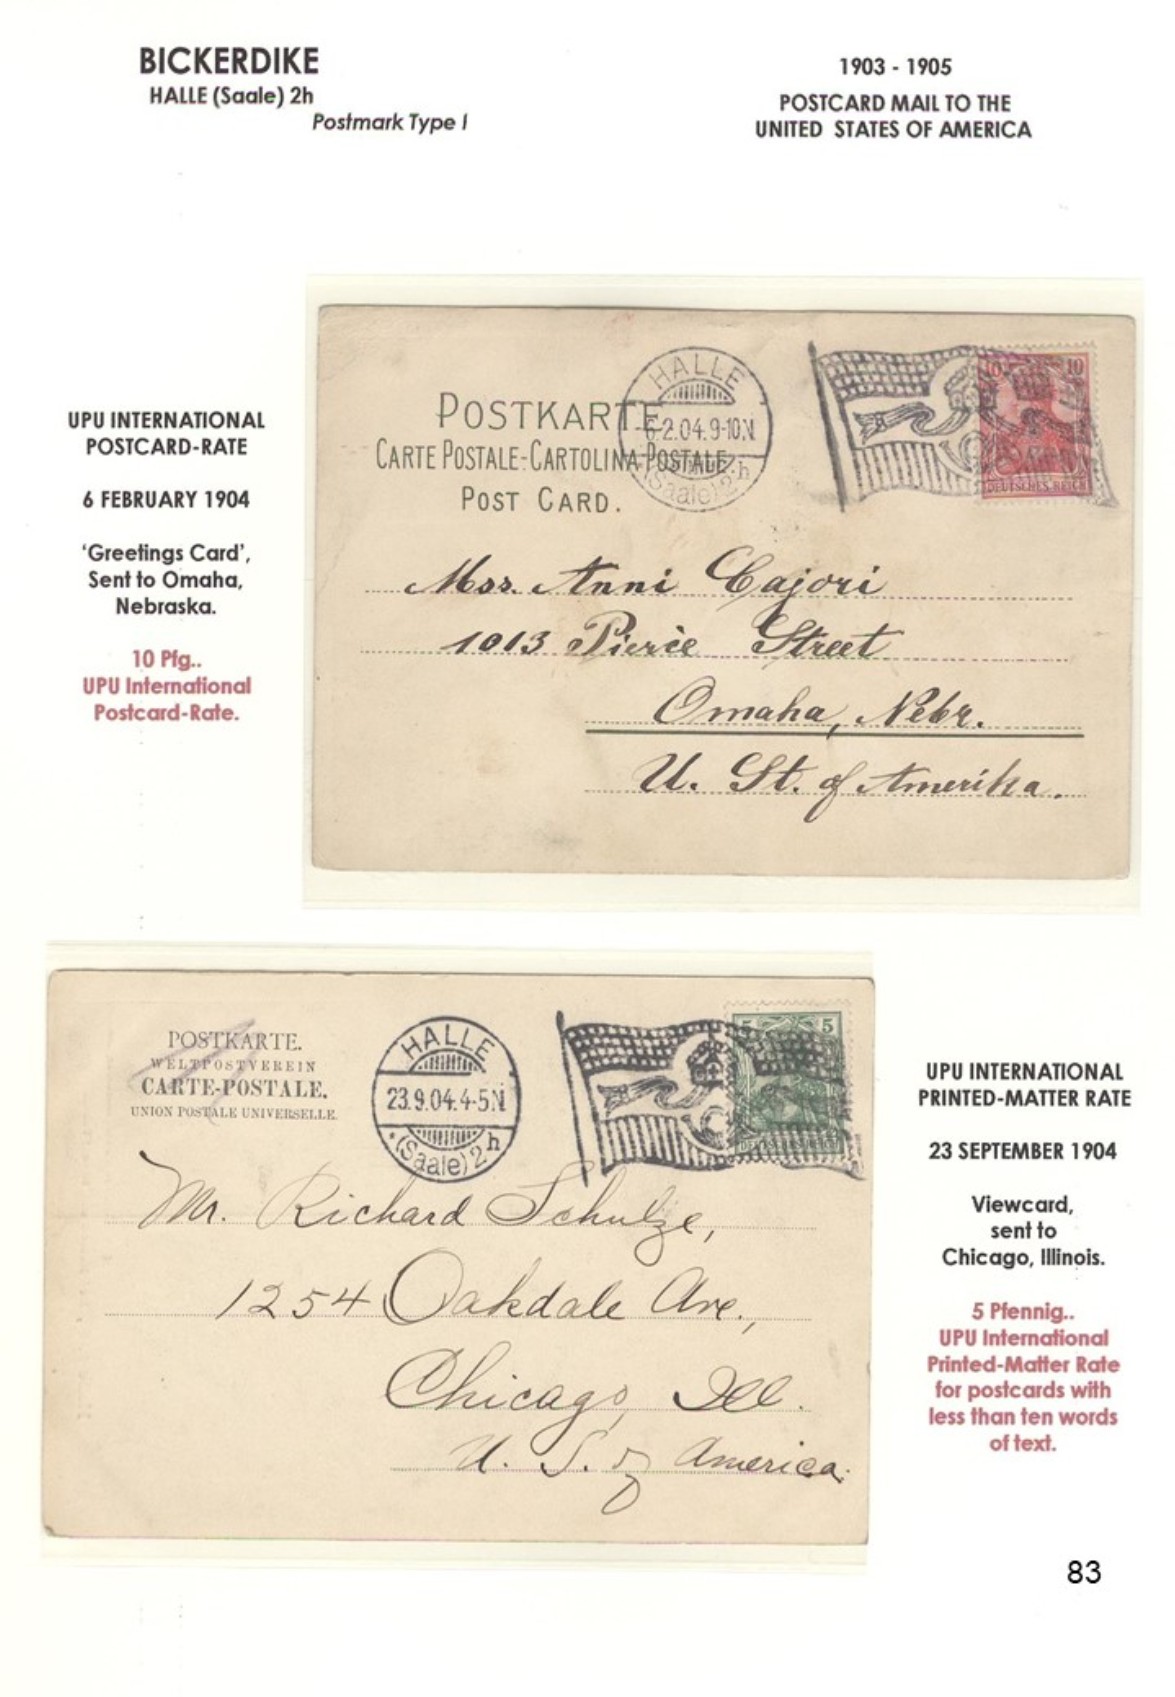 BICKERDIKE
HALLE (Saale) 2h
Postmark Type I
1903 - 1905
POSTCARD MAIL TO THE
UNITED STATES OF AMERICA
UPU INTERNATIONAL
POSTCARD-RATE
6 FEBRUARY 1904
‘Greetings Card’,
Sent to Omaha,
Nebraska.
10 Pfg..
UPU International
Postcard-Rate.
POSTKARTE
CARTE POSTALE-CARTOLINA POSTALE
POST CARD.
HALLE
6.2.04.9-10N
(Saale) 2h
10 10
DEUTSCHES REICH
Mss. Anni Cajori
1013 Pierce Street
Omaha, Nebr.
U. St. of Amerika.
POSTKARTE.
WELTPOSTVEREIN
CARTE-POSTALE.
UNION POSTALE UNIVERSELLE.
HALLE
23.9.04.4-5N
* (Saale) 2h
5 5
DEUTSCHES REICH
Mr. Richard Schulze,
1254 Oakdale Ave.,
Chicago, Ill.
U. S. of America.
UPU INTERNATIONAL
PRINTED-MATTER RATE
23 SEPTEMBER 1904
Viewcard,
sent to
Chicago, Illinois.
5 Pfennig..
UPU International
Printed-Matter Rate
for postcards with
less than ten words
of text.
83